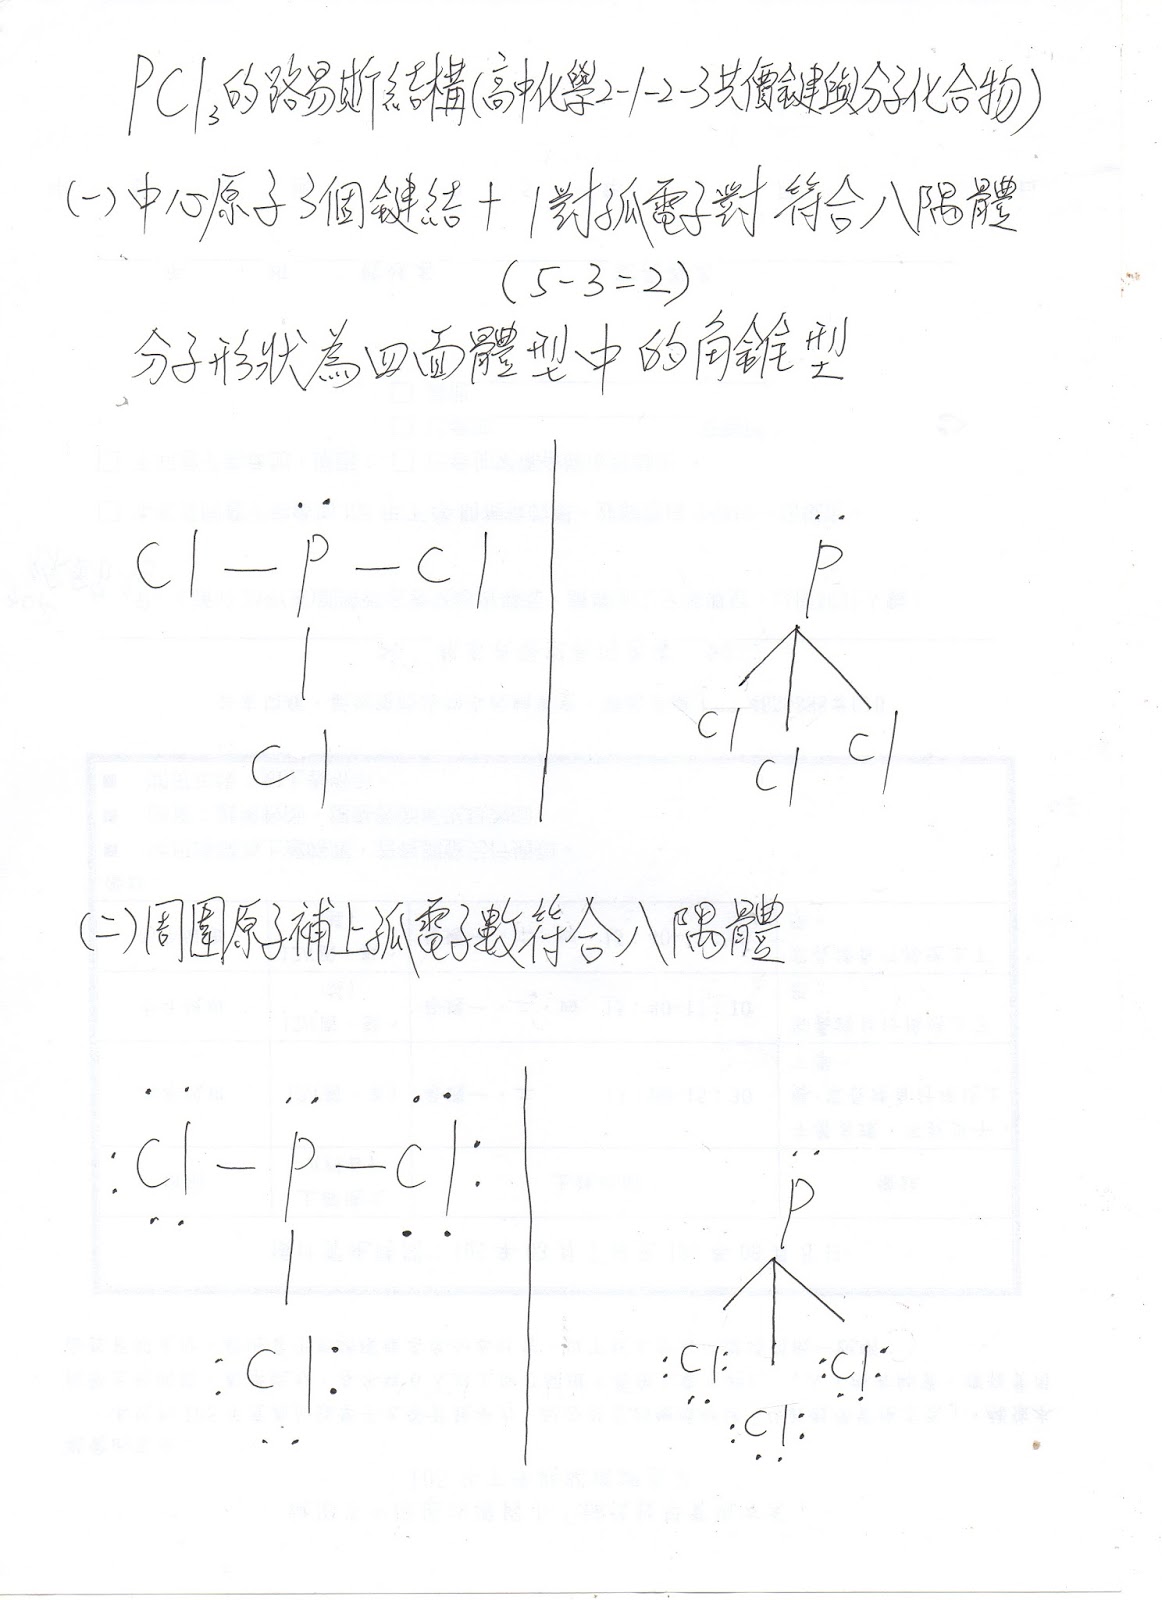 PCl₃的路易斯結構(高中化學2-1-2-3共價鍵與分子化合物)
(一)中心原子3個鍵結+1對孤電子對符合八隅體
(5-3=2)
分子形狀為四面體型中的角錐型
Cl—P—Cl
Cl
P
Cl
Cl
Cl
(二)周圍原子補上孤電子數符合八隅體
Cl—P—Cl
Cl
P
Cl
Cl
Cl